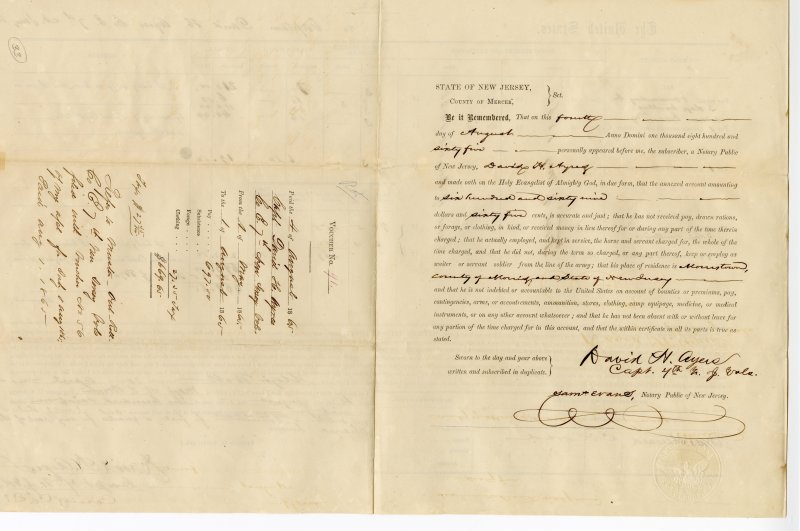 33
STATE OF NEW JERSEY,
COUNTY OF MERCER, } Sct.
Be it Remembered, That on this fourth
day of August Anno Domini one thousand eight hundred and
sixty five personally appeared before me, the subscriber, a Notary Public
of New Jersey, David H. Ayres
and made oath on the Holy Evangelist of Almighty God, in due form, that the annexed account amounting
to six hundred and sixty nine
dollars and sixty five cents, is accurate and just; that he has not received pay, drawn rations,
or forage, or clothing, in kind, or received money in lieu thereof for or during any part of the time therein
charged; that he actually employed, and kept in service, the horse and servant charged for, the whole of the
time charged, and that he did not, during the term so charged, or any part thereof, keep or employ as
waiter or servant soldier from the line of the army; that his place of residence is Morristown,
County of Morris, and State of New Jersey
and that he is not indebted or accountable to the United States on account of bounties or premiums, pay,
contingencies, arms, or accoutrements, ammunition, stores, clothing, camp equipage, medicine, or medical
instruments, or on any other account whatsoever; and that he has not been absent with or without leave for
any portion of the time charged for in this account, and that the within certificate in all its parts is true as
stated.
Sworn to the day and year above
written and subscribed in duplicate.
David H. Ayers
Capt. 7th N. J. Vols.
Saml Evans, Notary Public of New Jersey.
VOUCHER No.
Paid the 4 August 1865
Capt David H. Ayres
Co. E. 7th New Jersey Vols.
From the 1 of May 1865
To the 1 of August 1865
Pay, 697.00
Subsistence
Forage,
Clothing,
27.35 Tax
$669.65
Tax $27.35
Co. E. 7 New Jersey Vols
Paid Aug 1865